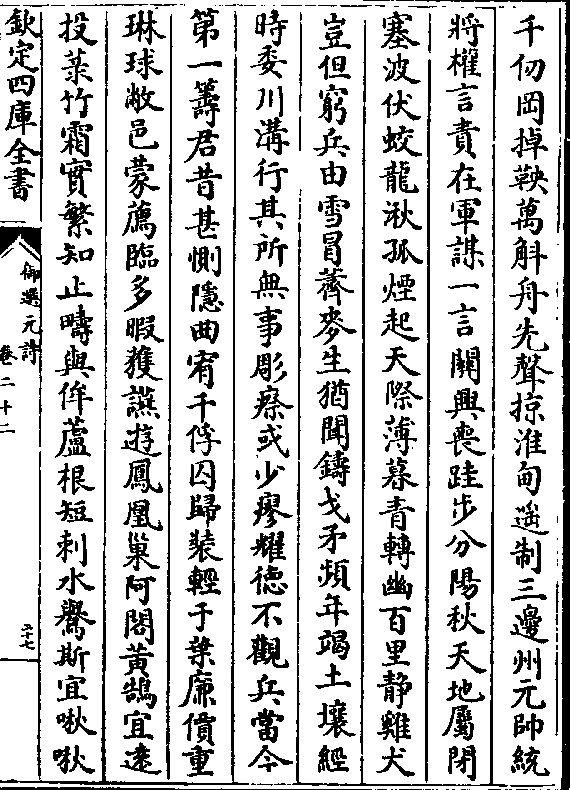 千仞岡掉鞅萬斛舟先聲掠淮甸遥制三邊州元帥統
將權言責在軍謀一言關興喪跬步分陽秋天地屬閉
塞波伏蛟龍湫孤煙起天際薄暮青轉幽百里静雞犬
豈但窮兵由雪冒薺麥生猶聞鑄戈矛頻年竭土壤經
時委川溝行其所無事彫瘵或少瘳耀徳不觀兵當今
第一籌君昔甚惻隱曲宥千俘囚歸裝輕于葉廉價重
琳球敝邑蒙薦臨多暇獲讌遊鳳凰巢阿閣黄鵠宜逺
投菉竹霜實繁知止疇與侔蘆根短刺水鷔斯宜啾啾
欽定四庫全書
御選元詩
卷二十二
二十七